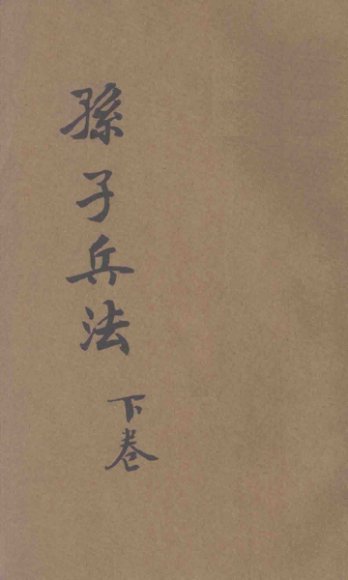 孫子兵法
下卷